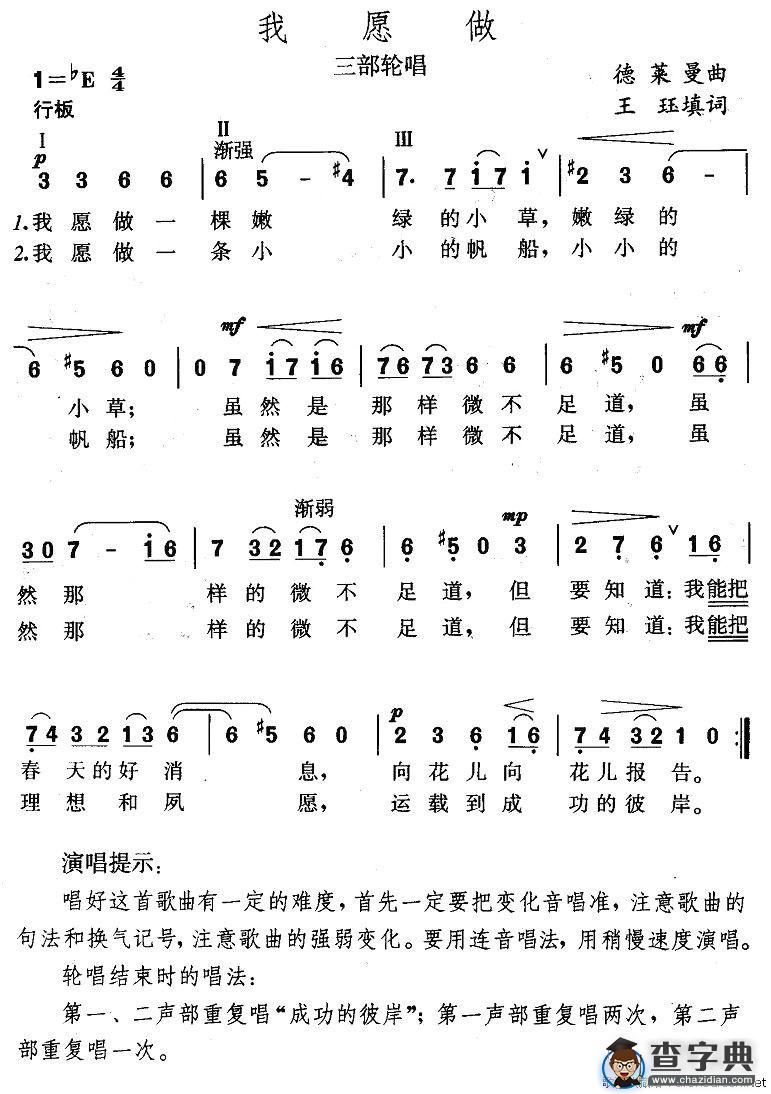 我愿做
三部轮唱
1=♭E 4/4
德莱曼曲
行板
王珏填词
Ⅰ Ⅱ Ⅲ
p 渐强
3 3 6 6 | 6 5 - #4 | 7. 7 i 7 i ∨ | #2 3 6 - |
1.我愿做一棵嫩绿的小草，嫩绿的
2.我愿做一条小小的帆船，小小的
mf mf
6 #5 6 0 | 0 7 i 7 i 6 | 7 6 7 3 6 6 | 6 #5 0 6 6 |
小草；虽然是那样微不足道，虽
帆船；虽然是那样微不足道，虽
渐弱 mp
3 0 7 - i 6 | 7 3 2 1 7 6 | 6 #5 0 3 | 2 7 6 ∨ 1 6 |
然那样的微不足道，但要知道：我能把
然那样的微不足道，但要知道：我能把
p
7 4 3 2 1 3 6 | 6 #5 6 0 | 2 3 6 1 6 | 7 4 3 2 1 0 :‖
春天的好消息，向花儿向花儿报告。
理想和夙愿，运载到成功的彼岸。
演唱提示：
唱好这首歌曲有一定的难度，首先一定要把变化音唱准，注意歌曲的
句法和换气记号，注意歌曲的强弱变化。要用连音唱法，用稍慢速度演唱。
轮唱结束时的唱法：
第一、二声部重复唱“成功的彼岸”；第一声部重复唱两次，第二声
部重复唱一次。
查字典
www.chazidian.com